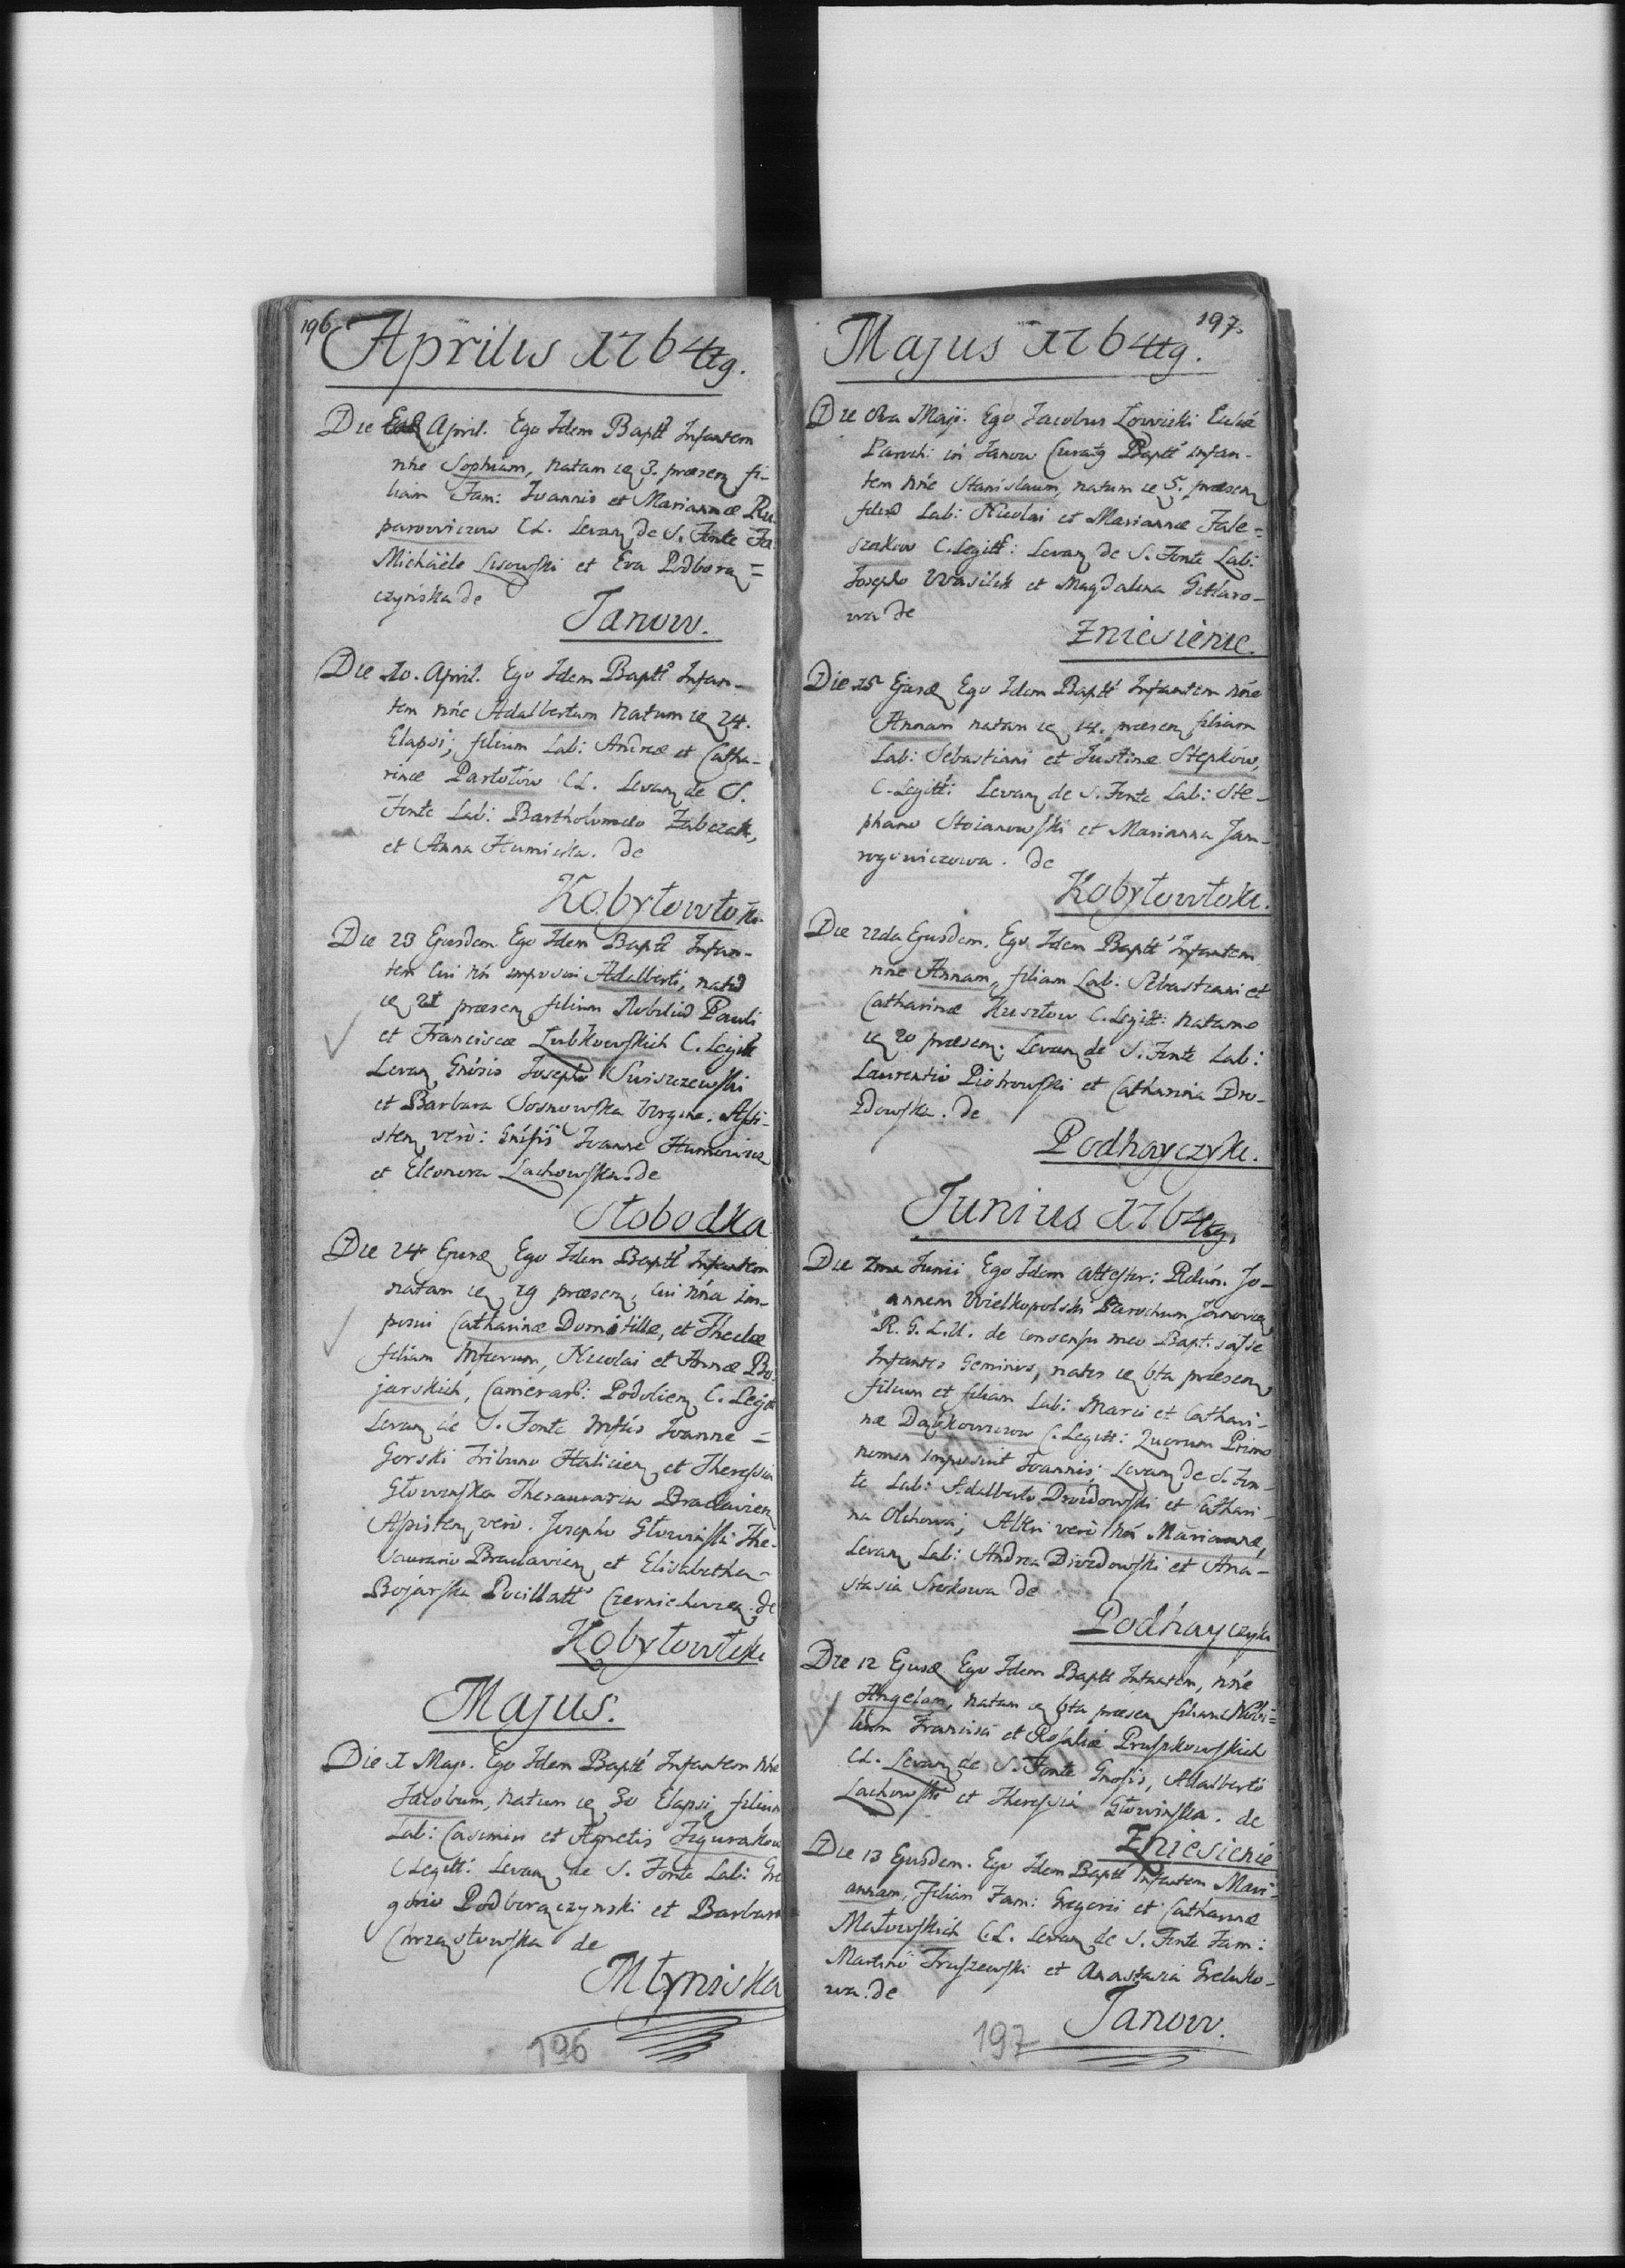 196
Aprilis 1764tg.
Die April. Ego Idem Baptt Infantem
nne Sophiam, natam 3. praesen fi-
liam Fam: Ioannis et Mariannae Ru-
parowiczow CL. Levan de S. Fonte Fa
Michaële Lisowski et Eva Podbora=
czynska de
Janow.
Die 10. April. Ego Idem Baptt Infan-
tem nne Adalbertum natum 24.
Elapsi, filium Lab: Andreae et Catha-
rinae Partołow CL. Levan de S.
Fonte Lab: Bartholomeo Zabczak,
et Anna Humicka. de
Kobyłowłoki
Die 23 Ejusdem Ego Idem Baptt Infan-
tem Cui imposui Adalberti, natu
21 praesen filium Nobiliu Pauli
et Franciscae Lubkowskich C. Legitt
Levan Gnosis Josepho Swiszczewski
et Barbara Sosnowska Virgine. Assi-
sten verò: Gnosis Ioanne Humenicz
et Eleonora Lachowska. de
Słobodka
Die 24 Ejusd Ego Idem Baptt Infantem
natam 19 praesen, Cui nna im-
posui Catharinae Domitillae, et Theclae
filiam Mfcorum, Nicolai et Annae Bo-
jarskich, Camerar: Podolien C. Legitt
Levan de S. Fonte Mfcis Ioanne =
Gorski Tribuno Halicien et Theressia
Głowinska Thesauraria Braclavien
Assisten verò. Josepho Głowinski The-
saurario Braclavien et Elisabetha-
Bojarska Pocillatt Czerniechovien. de
Kobyłowłoki
Majus.
Die 1 Maji. Ego Idem Baptt Infantem nne
Jacobum, natum 30 Elapsi filium
Lab: Casimiri et Agnetis Figurakow
C Legitt: Levan de S. Fonte Lab: Gre
gorio Podboraczynski et Barbara
Chrząstowska de
Młyniska
196
197.
Majus 1764tg.
Die 8va Maji. Ego Jacobus Lowicki Ecclae
Paroch: in Janow Curatg Baptt infan-
tem nne Stanislaum, natum 5. praesen
filiu Lab: Nicolai et Mariannae Fale-
szokow C. Legitt: Levan de S. Fonte Lab:
Josepho Wasilek et Magdalena Gitlaro-
wa de
Zniesienie.
Die 15 Ejusd Ego Idem Baptt Infantem nne
Annam natam 14. praesen filiam
Lab: Sebastiani et Justinae Stepkow,
C. Legitt: Levan de S. Fonte Lab: Ste-
phano Stoianowski et Marianna Jam-
rogowiczowa. de
Kobyłowłoki.
Die 22da Ejusdem. Ego Idem Baptt Infantem
nne Annam, filiam Lab: Sebastiani et
Catharinae Kusztow C. Legitt: natam
20 praesen. Levan de S. Fonte Lab:
Laurentio Piotrowski et Catharina Dro-
zdowska. de
Podhayczyki.
Junius 1764tg.
Die 7ma Junii Ego Idem attestor: Rdum. Jo-
annem Wielkopolski Parochum Janovien
R. G. L. U. de consensu meo Bapt: sasse
Infantes Geminos, natos 6ta praesen
filium et filiam Lab: Marci et Cathari-
nae C. Legitt: Quorum Primo
nomen imposuit Ioannis; Levan de S. Fon-
te Lab: Adalberto Drozdowski et Cathari-
na Olchowa; Alteri verò Mariannae,
Levan Lab: Andrea Drozdowski et Ana-
stasia de
Podhayczyki
Die 12 Ejusd Ego Idem Baptt Infantem, nne
Angelam, natam 6ta praesen filiam Nobi=
lium Francisci et Rosaliae Pruskowskich
CL. Levan de S. Fonte Gnosis, Adalberto
Lachowski et Theressia Głowinska. de
Zniesienie
Die 13 Ejusdem. Ego Idem Baptt Infantem Mari-
annam, filiam Fam: Gregorii et Catharinae
Małowskich CL. Levan de S. Fonte Fam:
Martino Truszewski et Anastasia Greluko-
wa. de
Janow.
197